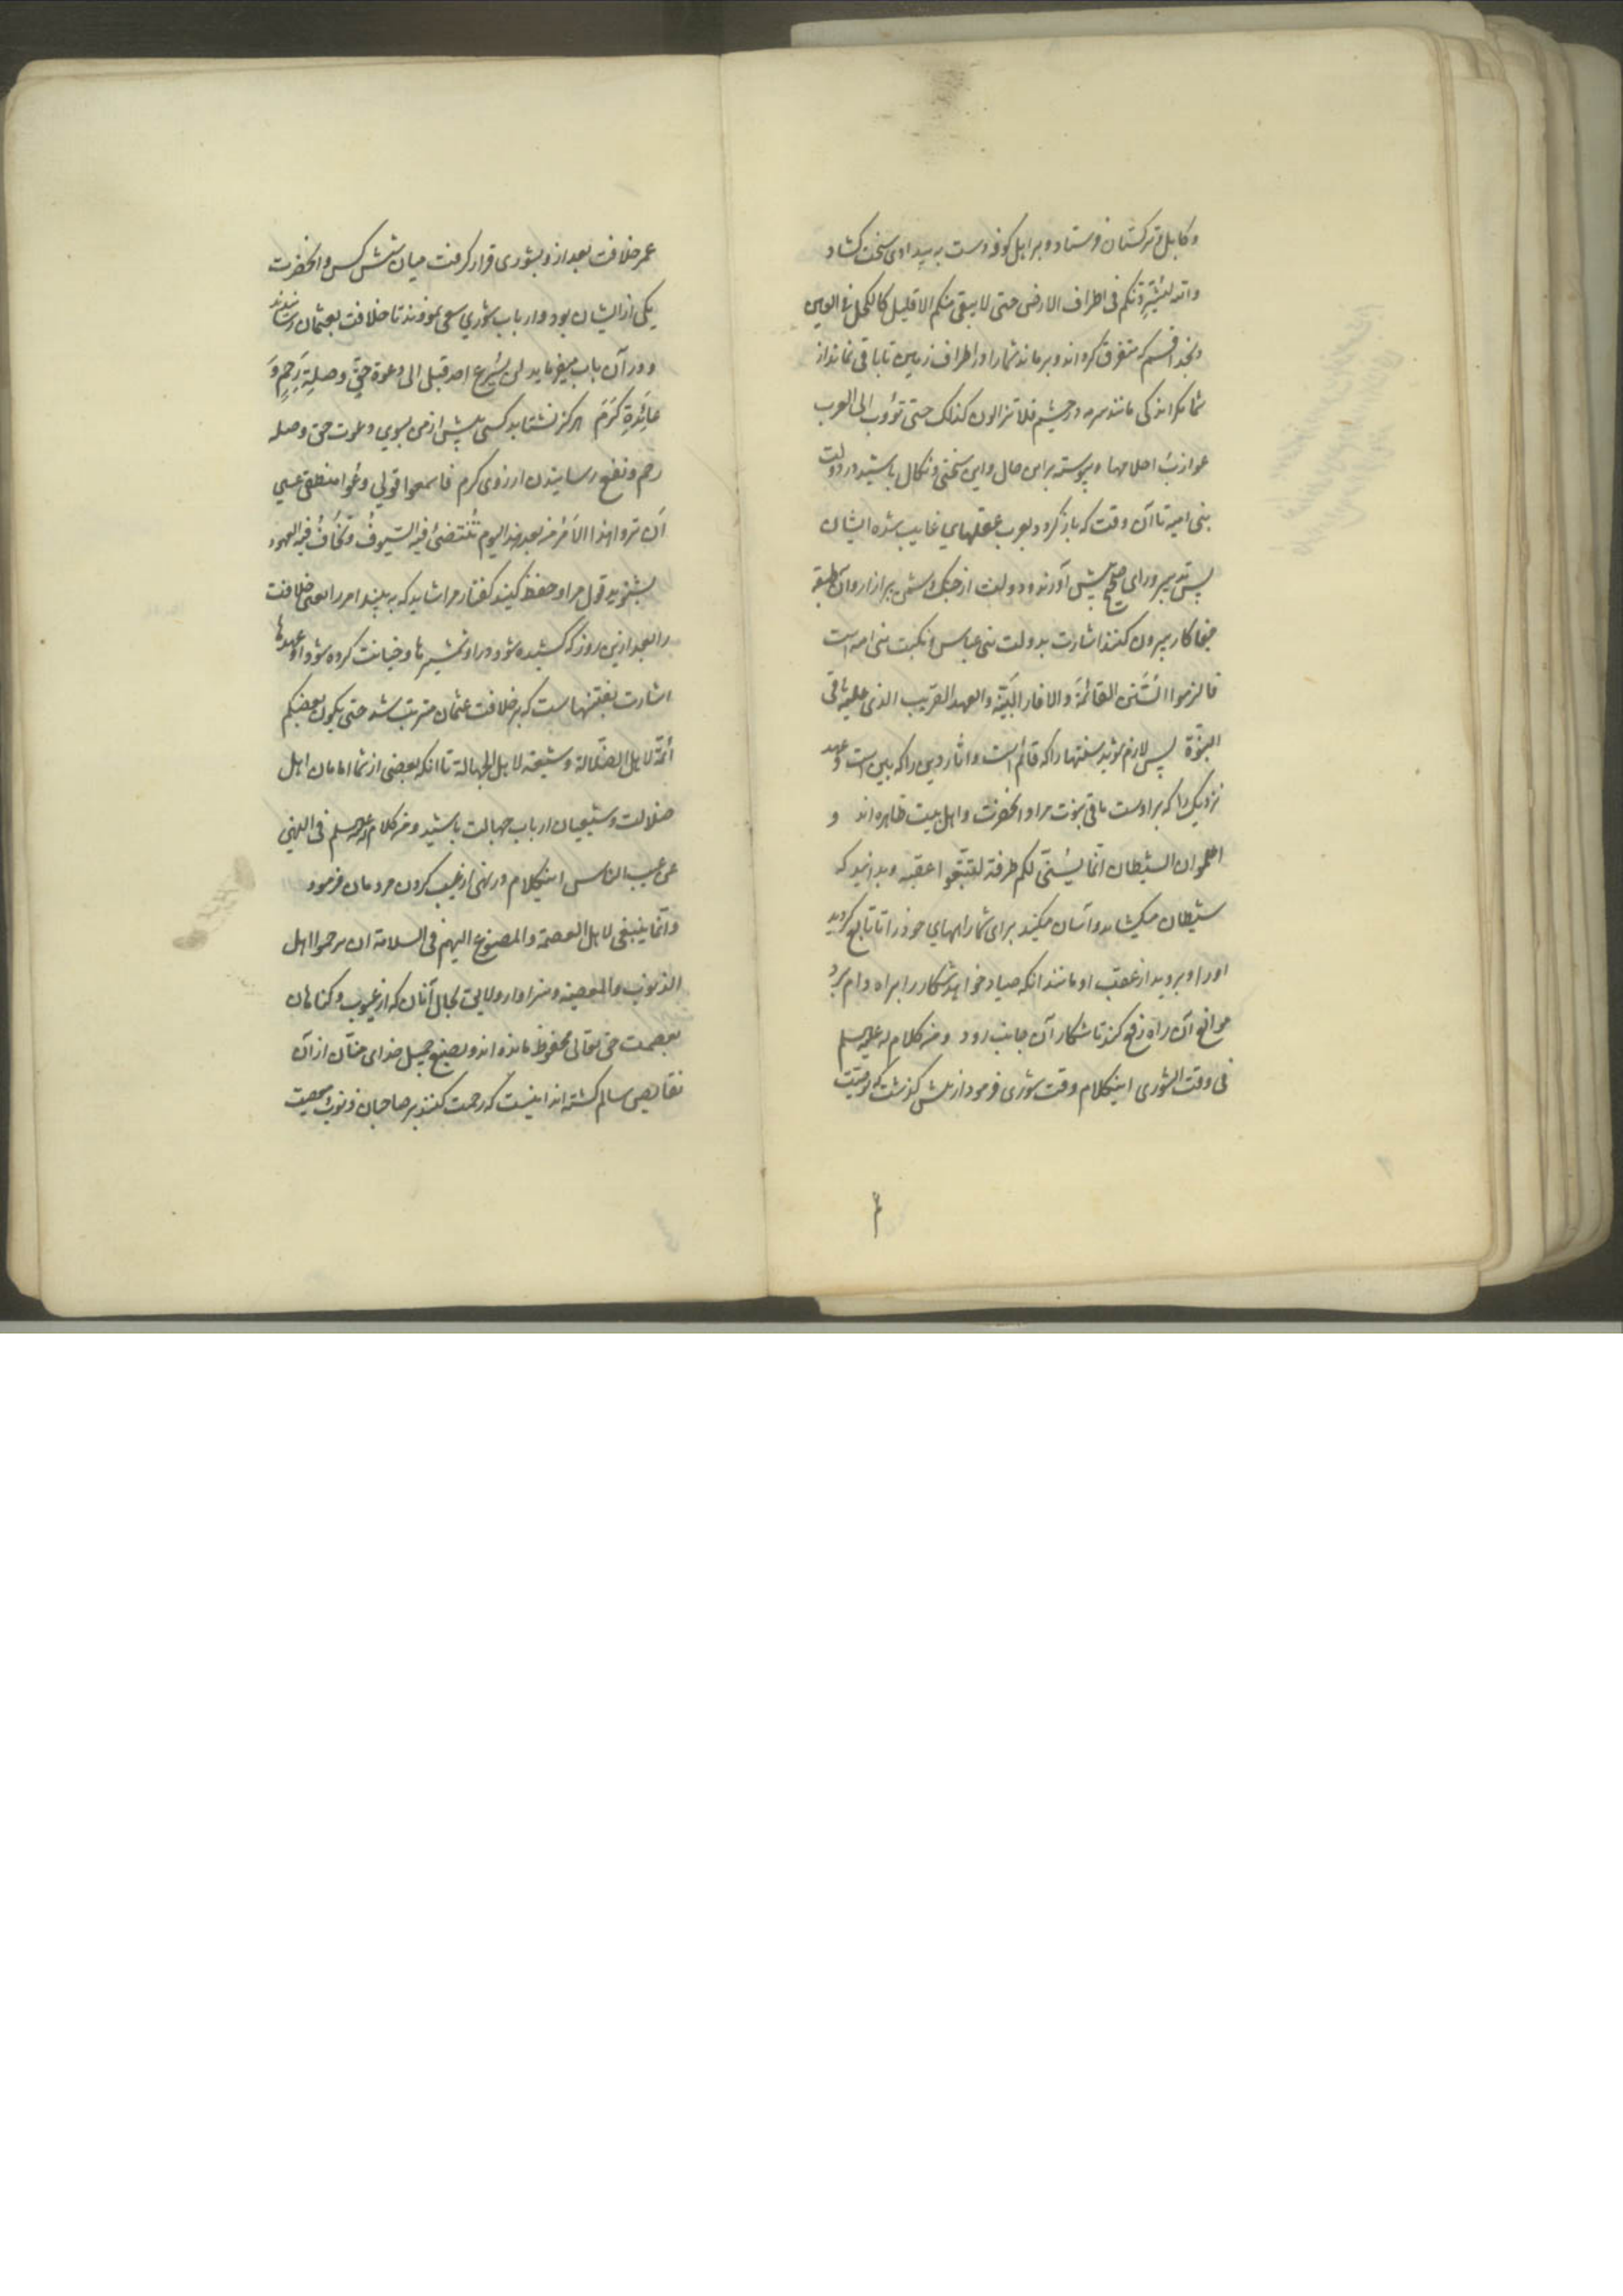 و کابل و ترکستان فرستاد و بر اهل کوفه دست به بیدادی سخت کشاد
والله لیشردنکم فی اطراف الارض حتی لا یبقی منکم الا قلیل کالکحل فی العین
بخدا قسم که متفرق کرداند و برماند شما را در اطراف زمین تا باقی نماند از
شما مکر اندکی مانند سرمه در چشم فلا تزالون کذلک حتی تؤوب الی العرب
عوازب احلامها پیوسته بر این حال و این سختی و نکال باشید در دولت
بنی امیه تا آن وقت که باز کردد بعرب عقلهای غایب شده ایشان
پس تدبیر و رای صحیح پیش آورند و دولت از چنک دشمن
جفا کار بیرون کنند اشارت بدولت بنی عباس و نکبت بنی امیه است
فالزموا السنن القائمة والاثار البینة والعهد القریب الذی علیه باقی
النبوة پس لازم شوید سنتها را که قائم است و اثار دین را که بین است و عهد
نزدیک را که بر اوست باقی نبوت مراد انحضرت و اهل بیت طاهره اند و
اعلموا ان الشیطان انما یسنی لکم طرقه لتتبعوا عقبه و بدانید که
شیطان میکشاید و آسان میکند برای شما راههای خود را تا تابع کردید
او را و بروید از عقب او مانند انکه صیاد خواهد شکار را براه دام برد
موانع آن راه رفع کند تا شکار آن جانب رود ومن کلام له علیه السلم
فی وقت الشوری اینکلام وقت شوری فرمود از پیش کذشت که بوصیت
عمر خلافت بعد از او بشوری قرار کرفت میان شش کس و انحضرت
یکی از ایشان بود و ارباب شوری سعی نمودند تا خلافت بعثمان رسانیدند
و در آن باب میفرماید لن یسرع احد قبلی الی دعوة حق وصلة رحم و
عائدة کرم هرکز نشتابد کسی پیش از من بسوی دعوت حق و صله
رحم و نفع رسانیدن از روی کرم فاسمعوا قولی وعوا منطقی عسی
ان تروا هذا الامر من بعد هذا الیوم تنتضی فیه السیوف وتخاف فیه العهود
بشنوید قول مرا و حفظ کنید کفتار مرا شاید که به بینید امر را یعنی خلافت
را بعد ازین روز که کشیده شود در او شمشیرها و خیانت کرده شود او عهدها
اشارت بفتنهاست که بر خلافت عثمان مترتب شد حتی یکون بعضکم
ائمة لاهل الضلالة وشیعة لاهل الجهالة تا انکه بعضی از شما امامان اهل
ضلالت و شیعیان ارباب جهالت باشید ومن کلام له علیه السلم فی النهی
عن عیب الناس اینکلام در نهی از عیب کردن مردمان فرمود
وانما ینبغی لاهل العصمة والمصنوع الیهم فی السلامة ان یرحموا اهل
الذنوب والمعصیة و سزاوار و لایق بحال آنان که از عیوب و کناهان
بعصمت حق تعالی محفوظ مانده اند و بصنع جمیل خدای منان از آن
نقایص سالم کشته اند اینست که رحمت کنند بر صاحبان ذنوب و معصیت